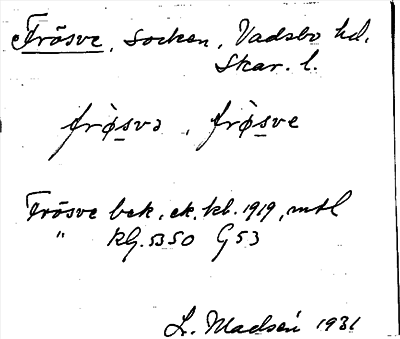 Frösve, socken, Vadsbo hd.
Skar. l.
frø̀svə, frø̀sve
Frösve bek, ek. kbl. 1919, mtl
" Kg. 5350 G 53
L. Madsén 1931